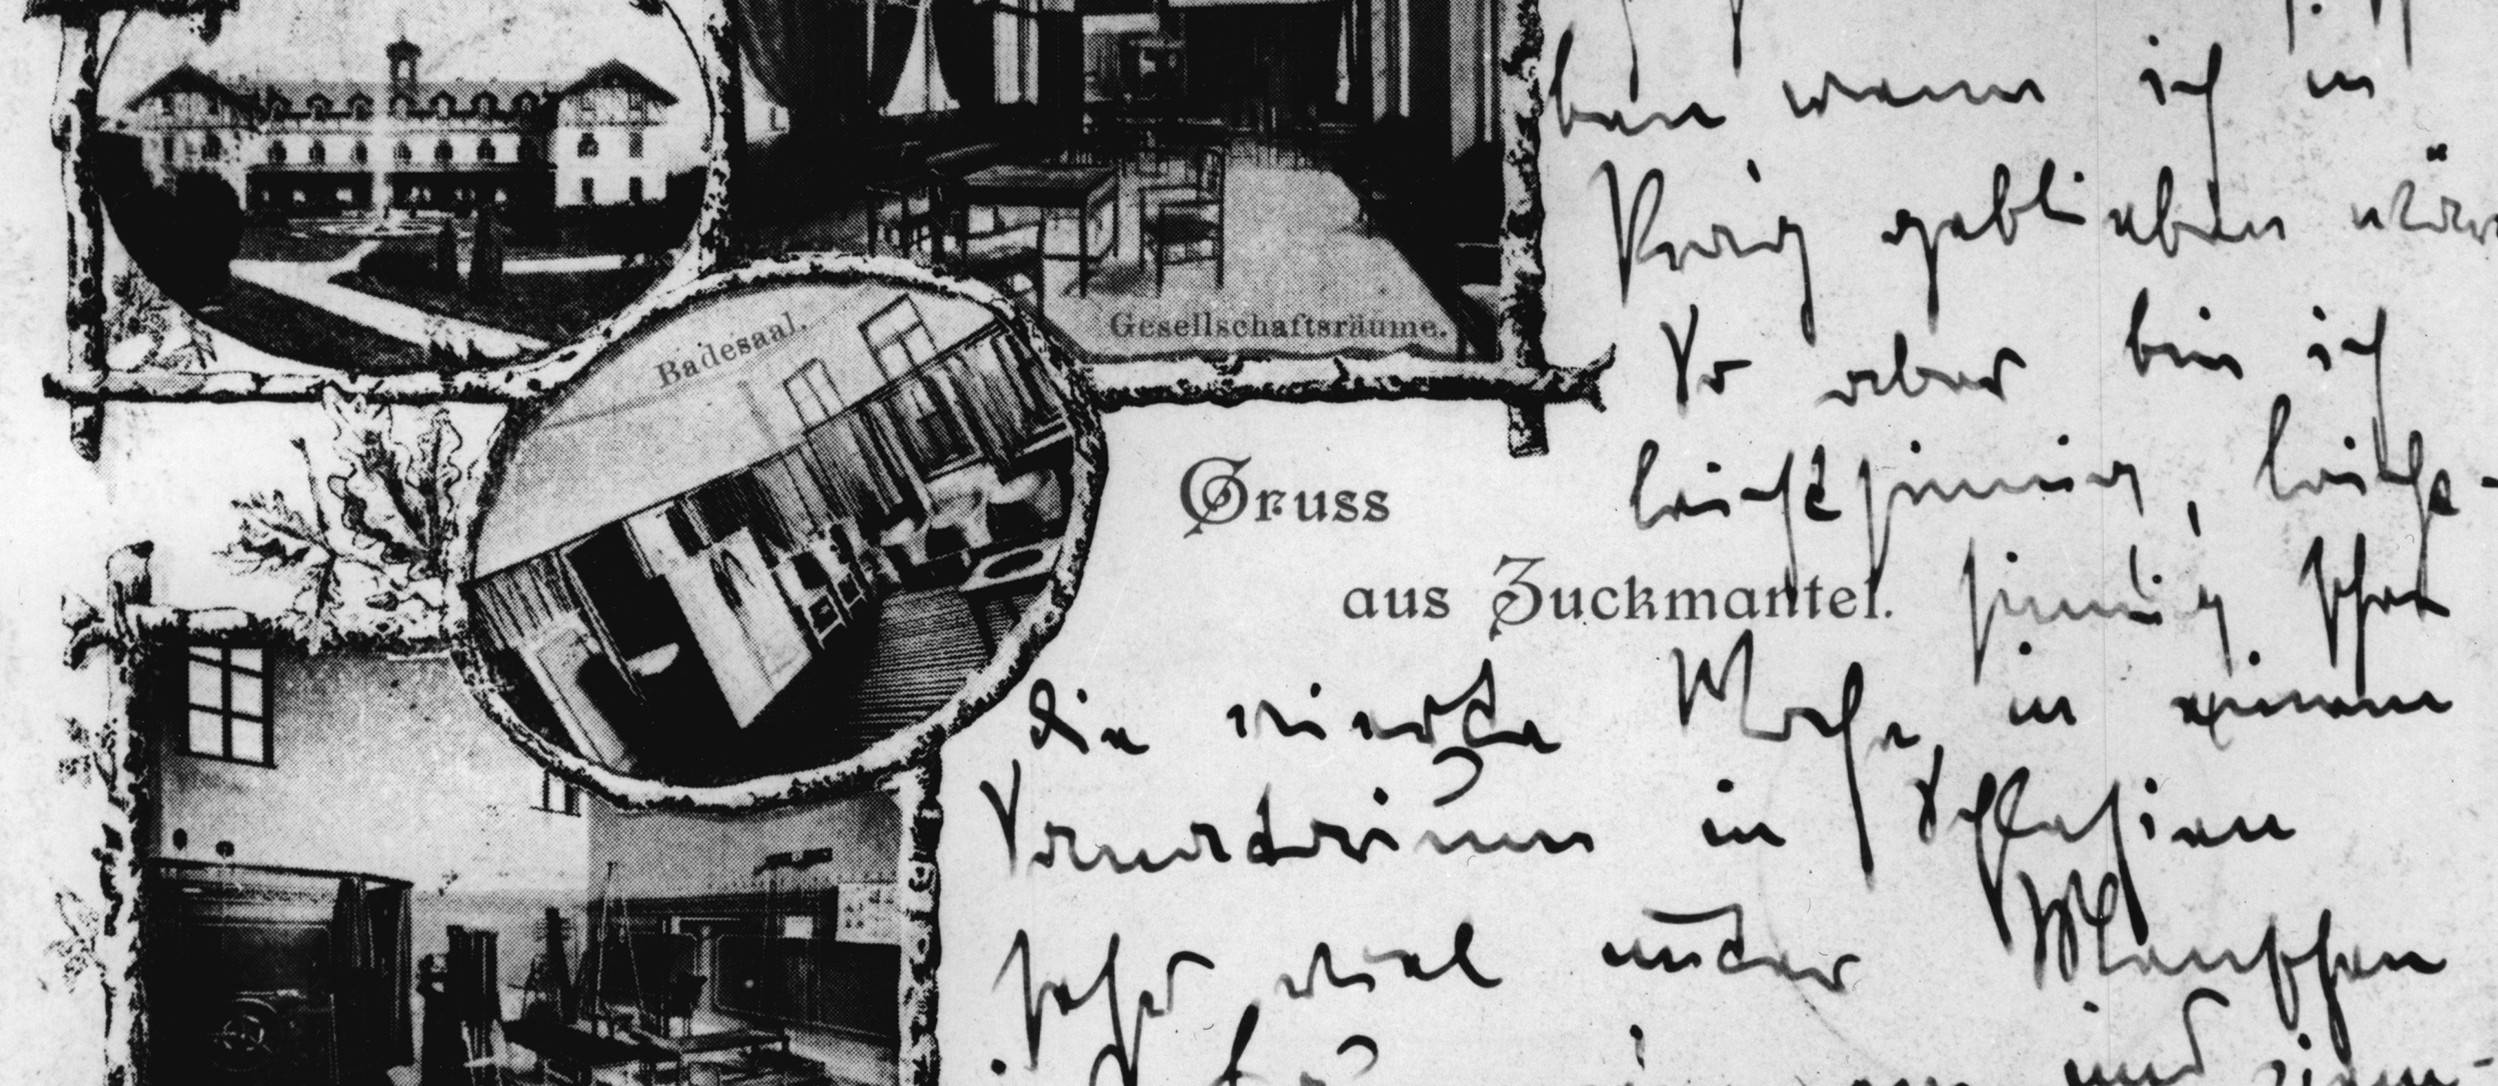 Badesaal.
Gesellschaftsräume.
Gruss
aus Zuckmantel.
ben wenn ich in
Prag geblieben wäre
So aber bin ich
leichtsinnig, leicht-
sinnig schon
die vierte Woche, in einem
Sanatorium in Schlesien
sehr viel unter Menschen
und ziem-